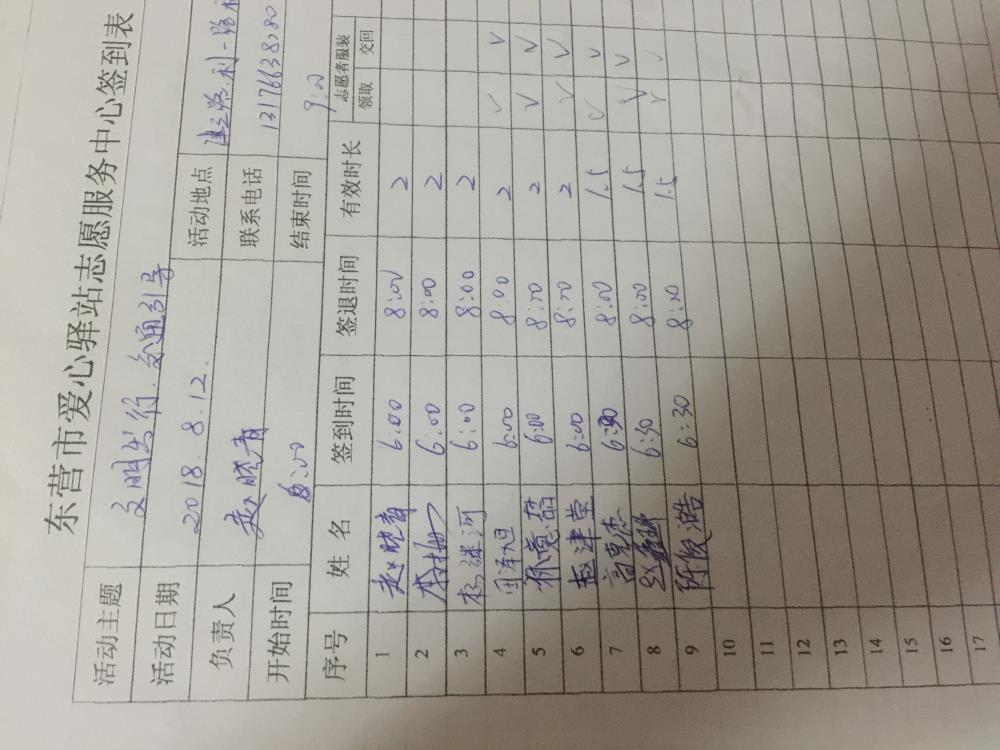 东营市爱心驿站志愿服务中心签到表
活动主题 文明出行.交通引导
活动日期 2018.8.12. 活动地点
负责人 赵晓青 联系电话 13176638280
开始时间 6:00 结束时间 9:00
序号 姓 名 签到时间 签退时间 有效时长 志愿者服装 领取 交回
1 赵晓青 6:00 8:00 2
2 6:00 8:00 2
3 杨继河 6:00 8:00 2
4 田泽旭 6:00 8:00 2 V V
5 徐惠喆 6:00 8:00 2 V V
6 孟津莹 6:00 8:00 2 V V
7 高克杰 6:30 8:00 1.5 V V
8 6:30 8:00 1.5 V V
9 6:30 8:00 1.5 V V
10
11
12
13
14
15
16
17